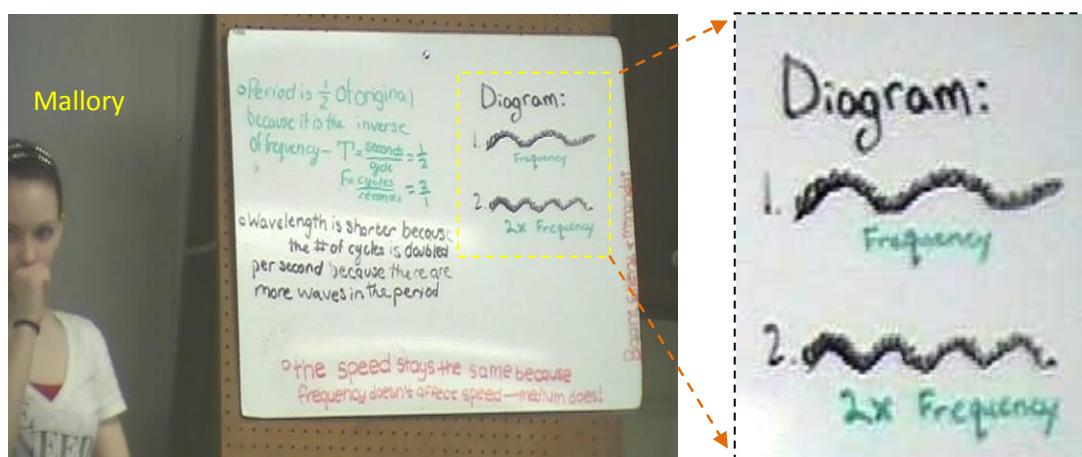 Mallory
○Period is 1/2 of original
because it is the inverse
of frequency– T=seconds/cycle=1/2
F=cycles/seconds=2/1
○Wavelength is shorter because
the # of cycles is doubled
per second because there are
more waves in the period
○the speed stays the same because
frequency doesn't affect speed—medium does!
Diagram:
1.
Frequency
2.
2x Frequency
Diagram:
1.
Frequency
2.
2x Frequency